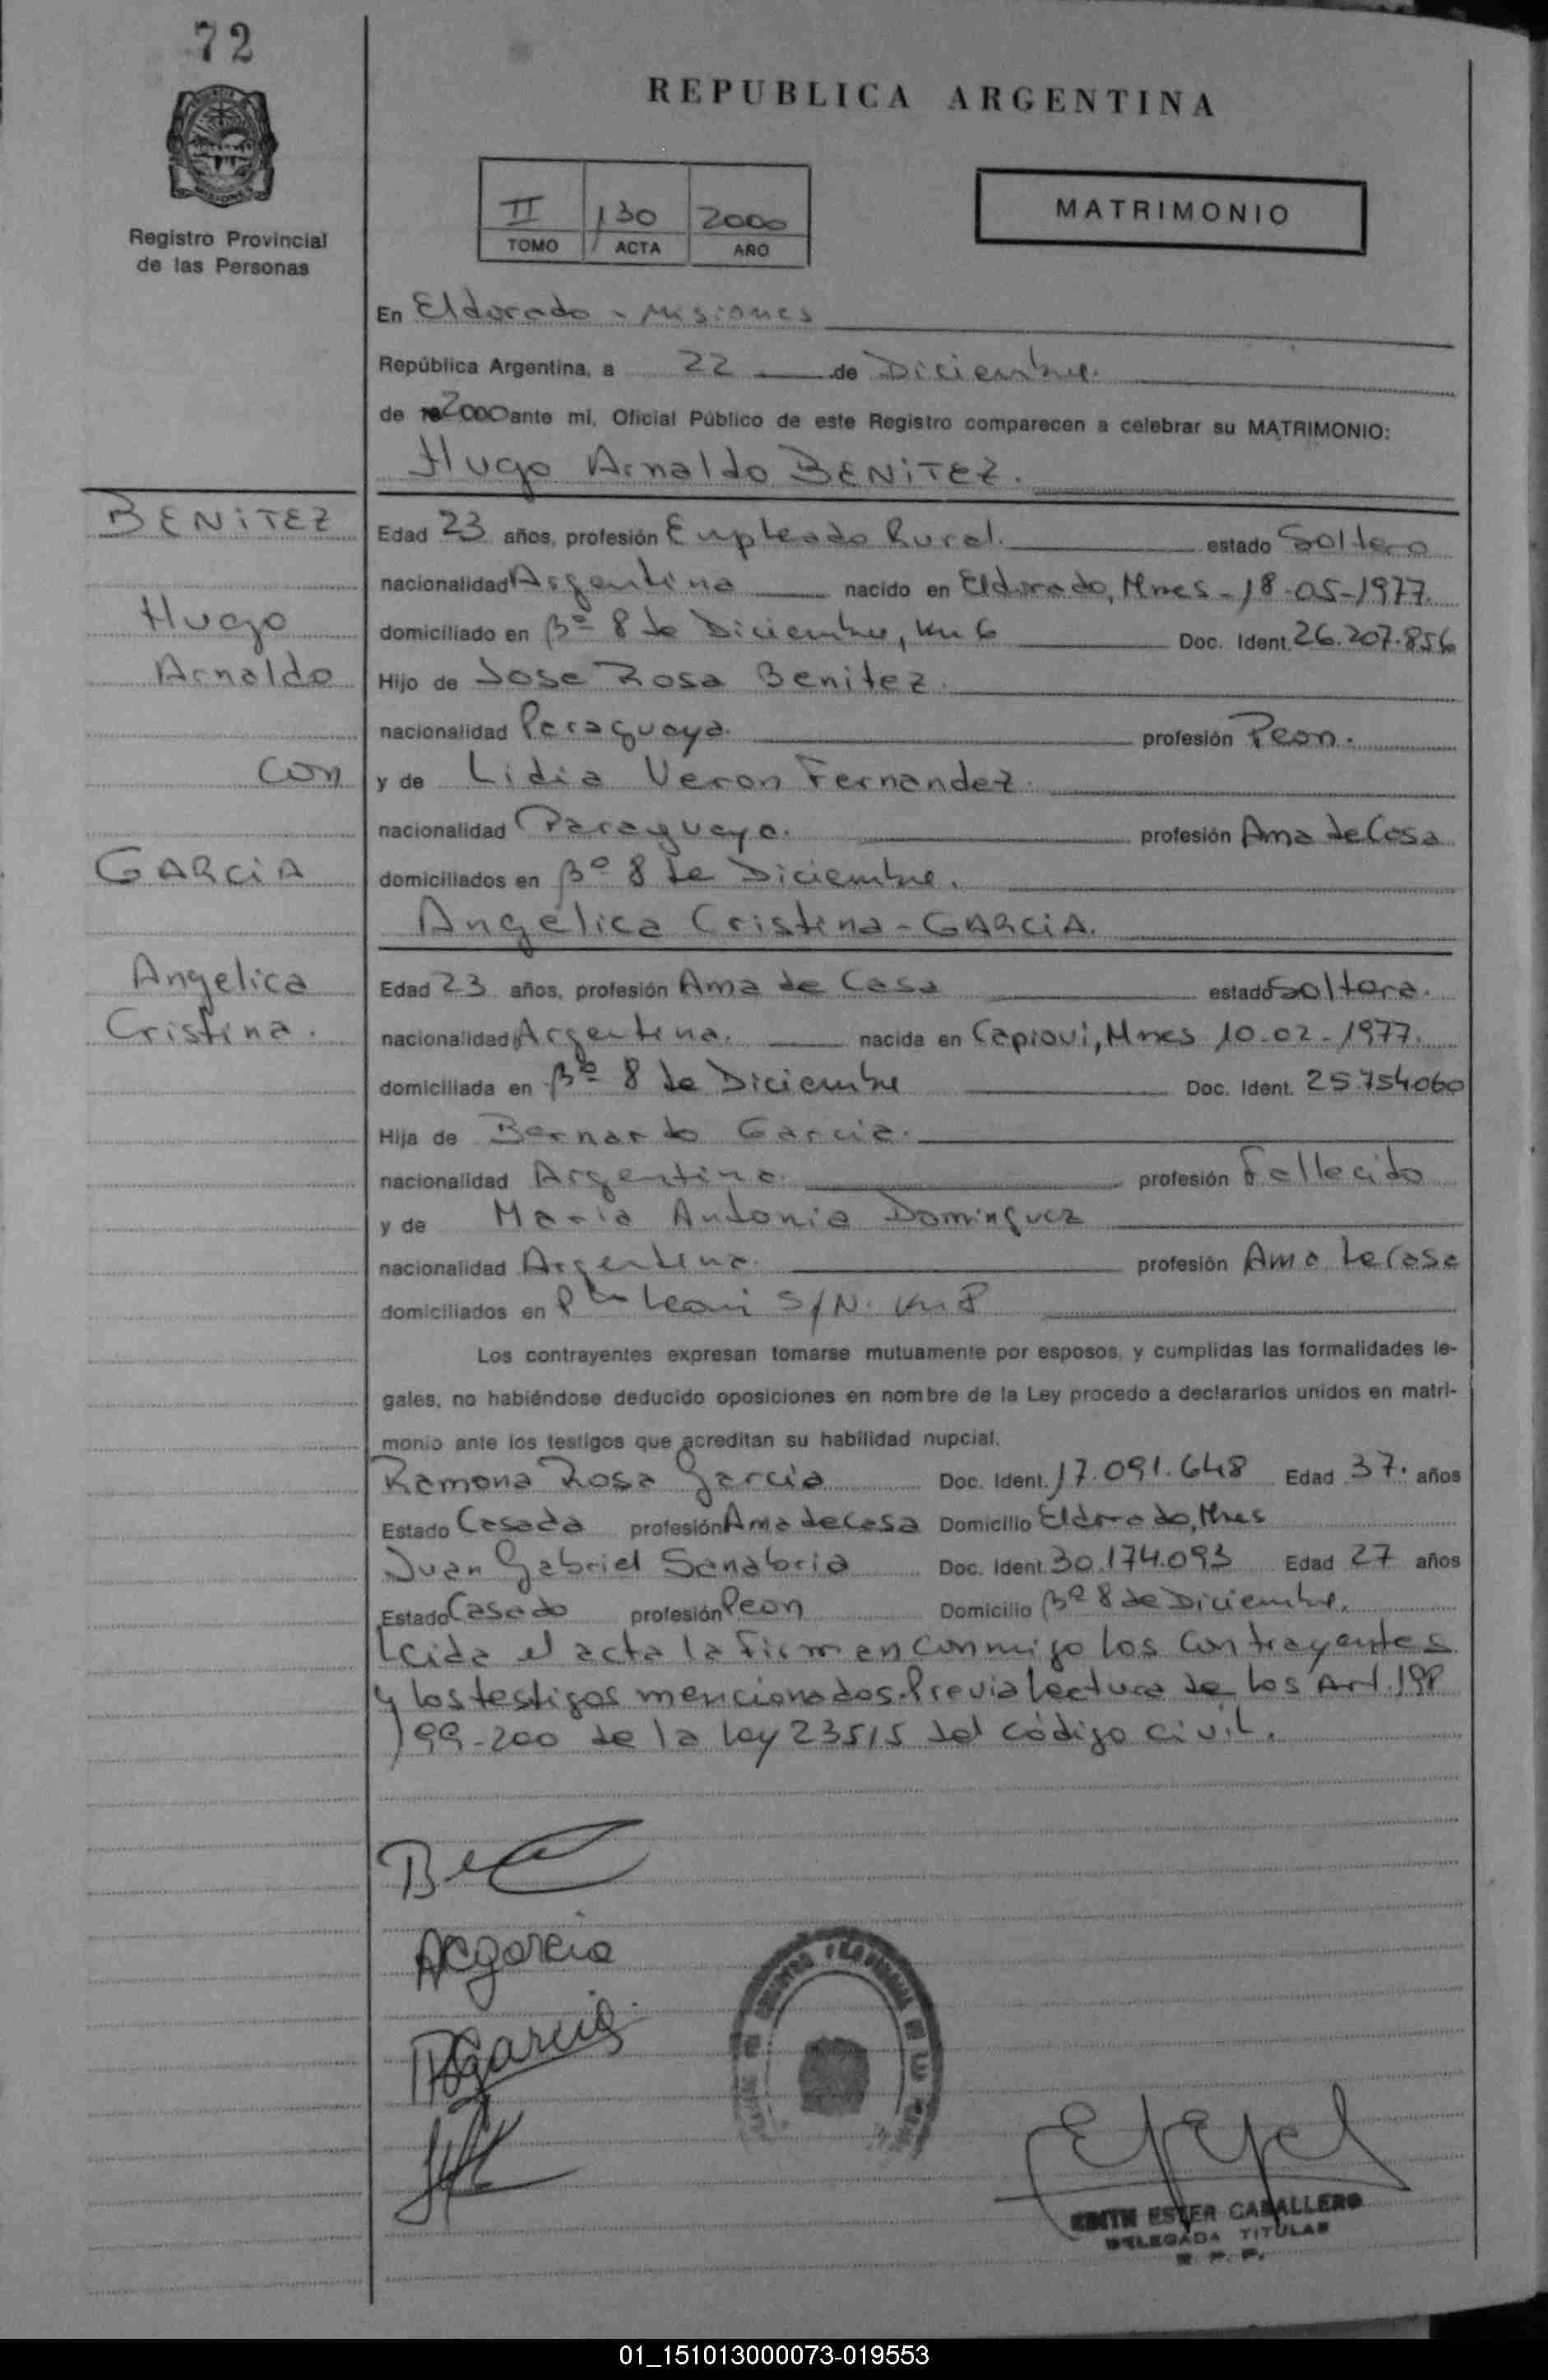 72
REPUBLICA ARGENTINA
Registro Provincial
de las Personas
II 130 2000
TOMO ACTA AÑO
MATRIMONIO
En Eldorado - Misiones
República Argentina, a 22 de Diciembre.
de 2000 ante mi, Oficial Público de este Registro comparecen a celebrar su MATRIMONIO:
Hugo Arnaldo BENiTEZ.
BENiTEZ
Hugo
Arnaldo
con
GARCiA
Angelica
Cristina.
Edad 23 años, profesión Empleado Rural. estado Soltero
nacionalidad Argentina nacido en Eldorado, Mnes - 18-05-1977.
domiciliado en Bº 8 de Diciembre, Km 6 Doc. Ident. 26.207.856
Hijo de Jose Rosa Benitez.
nacionalidad Paraguaya. profesión Peon.
y de Lidia Veron Fernandez.
nacionalidad Paraguaya. profesión Ama de Casa
domiciliados en Bº 8 de Diciembre.
Angélica Cristina - GARCiA.
Edad 23 años, profesión Ama de Casa estado Soltera.
nacionalidad Argentina. nacida en Capiovi, Mnes 10-02-1977.
domiciliada en Bº 8 de Diciembre Doc. Ident. 25.754060
Hija de Bernardo Garcia.
nacionalidad Argentina. profesión Fallecido
y de Maria Antonia Dominguez
nacionalidad Argentina. profesión Ama de Casa
domiciliados en S/N. Km 8
Los contrayentes expresan tomarse mutuamente por esposos, y cumplidas las formalidades le-
gales, no habiéndose deducido oposiciones en nombre de la Ley procedo a declararlos unidos en matri-
monio ante los testigos que acreditan su habilidad nupcial.
Ramona Rosa Garcia Doc. Ident. 17.091.648 Edad 37. años
Estado Casada profesión Ama de casa Domicilio Eldorado, Mnes
Juan Gabriel Sanabria Doc. Ident. 30.174.093 Edad 27 años
Estado Casado profesión Peon Domicilio Bº 8 de Diciembre.
Leida el acta la firman conmigo los contrayentes
y los testigos mencionados. Previa lectura de los Art. 198
199-200 de la ley 23515 del código civil.
ACgarcia
RGarcia
EDITH ESTER CABALLERO
DELEGADA TITULAR
R. P. P.
01_151013000073-019553